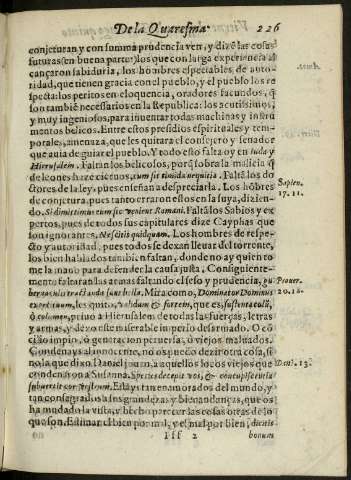 De la Quaresma. 226
conjeturan y con summa prudencia ven, y dizẽ las cosas
futuras (en buena parte) los que con larga experiencia al
cançaron sabiduria, los hombres espectables, de auto-
ridad, que tienen gracia con el pueblo, y el pueblo los re
specta: los peritos en eloquencia, oradores facundos, q̃
son tambiẽ necessarios en la Republica: los acutissimos,
y muy ingeniosos, para inuentar todas machinas y instru
mentos belicos. Entre estos presidios espirituales y tem-
porales, amenaza, que les quitara el consejero y senador
que auia de guiar el pueblo. Y todo esto falta oy en Iuda y
Hierusalem. Faltan los belicosos, porq̃ sobra la malicia q̃
de leones haze cieruos, cum sit timida nequitia. Faltã los do
ctores de la ley, pues enseñan a despreciarla. Los hõbres
de conjetura, pues tanto erraron estos en la suya, dizien-
do. Si dimittimus eum sic venient Romani. Faltã los Sabios y ex
pertos, pues de todos sus capitulares dize Cayphas que
son ignorantes. Nescitis quidquam. Los hombres de respe-
cto y autoridad, pues todos se dexan lleuar del torrente,
los bien hablados tambien faltan, donde no ay quien to
me la mano para defender la causa justa. Consiguiente-
mente faltaran las armas faltando el seso y prudencia,
Mira como, Dominator Dominus
les quitò, validum & fortem, que es,
ò colomen, priuo a Hierusalem de todas las fuerças, letras
y armas, y dexo este miserable imperio desarmado. O cõ
cilio impio, ò generacion peruersa, ò viejos maluados.
Condenays al innocente, no os puedo dezir otra cosa, si
no la que dixo Daniel a aquellos locos viejos que
condenaron a Susanna. Species decepit vos, & concupiscentia
subuertit cor vestrum. Estays tan enamorados del mundo, y
tan consagrados a sus grandezas y bienandanças, que os
ha mudado la vista, y hecho parecer las cosas otras de lo
que son. Estiman el bien por mal, y el mal por bien, dicitis
Iff 2 bonum
Sapien.
17. 11.
Prouer.
20. 18.
Dan. 13.